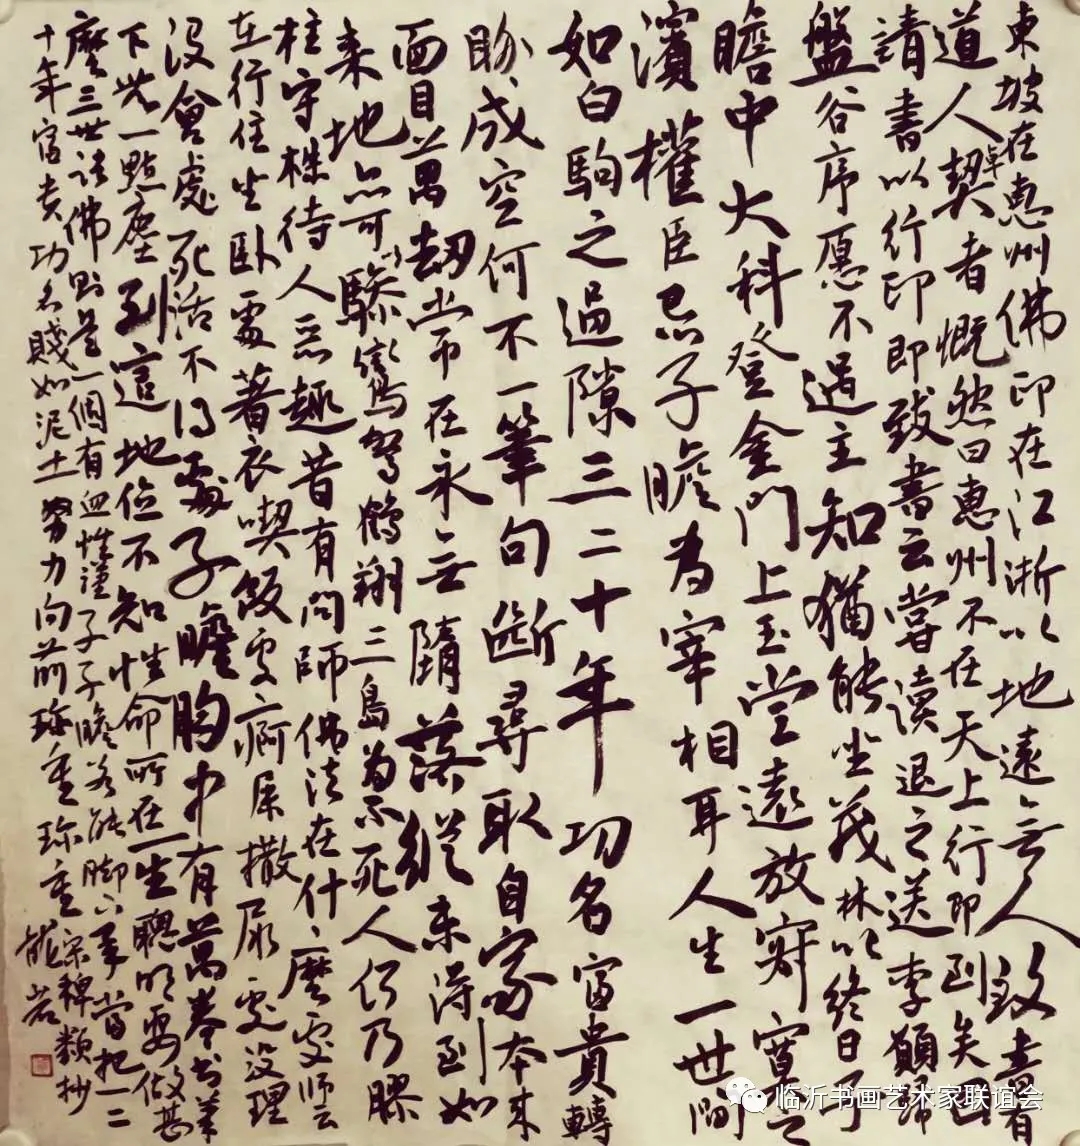 東坡在惠州佛印在江浙以地遠无人致書有
道人卓契者慨然曰惠州不在天上行即到矣因
請書以行印即致書云嘗读退之送李願歸
盤谷序愿不遇主知猶能坐茂林以終日子
瞻中大科登金門上玉堂遠放寂寞之
濱權臣忌子瞻为宰相耳人生一世間
如白駒之過隙三二十年功名富貴轉
盼成空何不一筆句斷尋取自家本来
面目萬劫常在永无墮落縱未得到如
来地亦可以驂鸞駕鶴翔三島为不死人何乃膠
柱守株待人恶趣昔有问師佛法在什麼處师云
在行住坐卧處著衣喫飯處痾屎撒尿處没理
没會處死活不得處子瞻胸中有萬卷书笔
下无一點塵到這地位不知性命所在一生聰明要做甚
麼三世诸佛則是一個有血性漢子子瞻若能脚下承當把一二
十年富贵功名賤如泥土努力向前珍重珍重宋稗類抄
龍岩
临沂书画艺术家联谊会